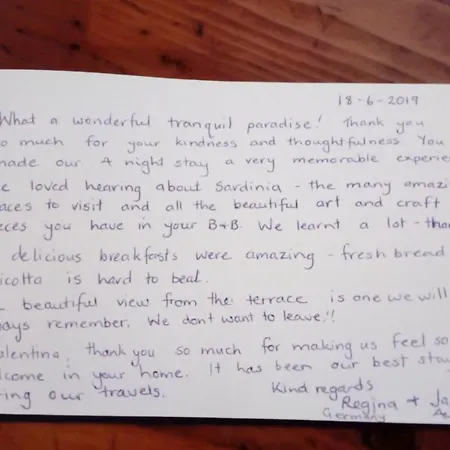 18-6-2019
What a wonderful tranquil paradise! Thank you
so much for your kindness and thoughtfulness. You
made our 4 night stay a very memorable experie
e loved hearing about Sardinia - the many amazi
aces to visit and all the beautiful art and craft
eces you have in your B+B. We learnt a lot - than
delicious breakfasts were amazing - fresh bread
icotta is hard to beat.
beautiful view from the terrace is one we will
ays remember. We dont want to leave!!
alentina, thank you so much for making us feel so
lcome in your home. It has been our best stay
ring our travels.
Kind regards
Regina + Ja
Germany